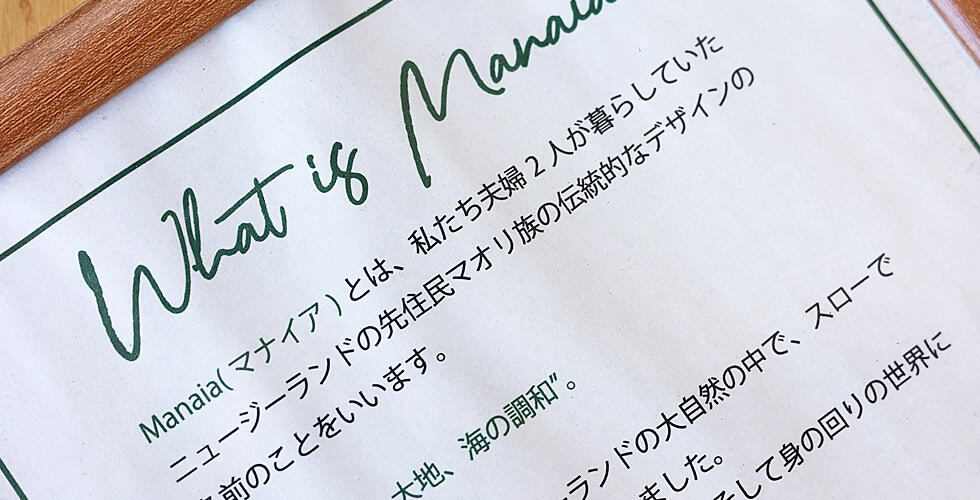 What is Manaia
Manaia(マナイア)とは、私たち夫婦2人が暮らしていた
ニュージーランドの先住民マオリ族の伝統的なデザインの
前のことをいいます。
大地、海の調和”。
ランドの大自然の中で、スローで
ました。
そして身の回りの世界に